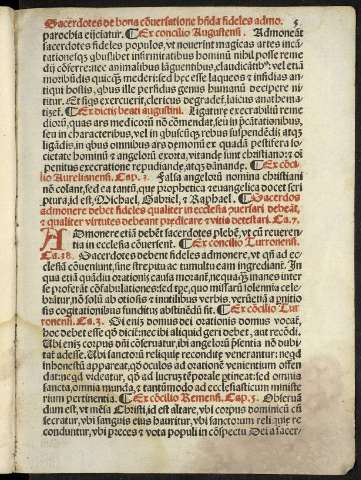 Sacerdotes de bona cōuersatione hn̄da fideles admo. 5
parochia eijciatur. ¶ Ex concilio Augustensi. Admoneāt
sacerdotes fideles populos, vt nouerint magicas artes incā-
tationesq́; qbuslibet infirmitatibus hominū nihil posse reme
dij cōferre: nec animalibus lāguentibus, claudicātib⁹ vel etiā
moribūdis quicq̄; mederi: sed hęc esse laqueos & insidias an-
tiqui hostis, qbus ille perfidus genus humanū decipere ni-
titur. Et siqs exercuerit, clericus degradeť, laicus anathema
tizeť. ¶ Ex dictis beati augustini. Ligaturę execrabiliū reme
diorū, quas ars medicorū nō cōmendat, seu in pcātationibus,
seu in characteribus, vel in qbuscūq; rebus suspendēdis atq;
ligādis, in qbus omnibus ars demonū ex quadā pestifera so-
cietate hominū & angelorū exorta, vitandę sunt christiano: & oī
penitus execratione repudiandę, atq; dānandę. ¶ Ex cōci-
lio Aurelianensi. Cap. 3. Falsa angelorū nomina christiani
nō colant, sed ea tantū, que prophetica & euangelica docet scri
ptura, id est, Michael, Gabriel, & Raphael. ¶ Sacerdos
admonere debet fideles qualiter in ecclesia ꝓuersari debeāt,
& qualiter virtutes debeant predicare & vitia detestari. Ca. 7.
ADmonere etiā debēt sacerdotes plebē, vt cū reueren-
tia in ecclesia cōuersent. ¶ Ex concilio Turronensi.
Ca. 38. Sacerdotes debent fideles admonere, vt qñ ad ec-
clesiā cōueniunt, sine strepitu ac tumultu eam ingrediant. In
qua etiā quādiu orationis causa morant, necquaq̄; inanes inter
se proferāt cōfabulationes: sed tpe, quo missarū solennia cele-
brātur, nō solū ab otiosis & inutilibus verbis, verūetiā a pnitio
sis cogitationibus funditus abstinēdū sit. ¶ Ex cōcilio Tur
ronensi. Ca. 3. Si enis domus dei orationis domus vocať,
hoc debet esse qd dicit: nec ibi aliquid geri debet, aut recōdi.
Ubi enis corpus dn̄i cōseruatur, ibi angelorū pn̄tiam nō dubi-
tat adesse. Ubi sanctorū reliquię recondite venerantur: neqd
inhonestū appareat, qd oculos ad orationē venientium offen
dat: neqd videatur, qd ad lucrū tēporale ptineat: sed omnia
sancta, omnia munda, & tantūmodo ad ecclesiasticum ministe
rium pertinentia. ¶ Ex cōcilio Remensi. Cap. 5. Obseruā
dum est, vt mēsa Christi, id est altare, vbi corpus dominicū cō
secratur, vbi sanguis eius hauritur, vbi sanctorum reliquię re
conduntur, vbi preces & vota populi in cōspectu Dei a sacer-